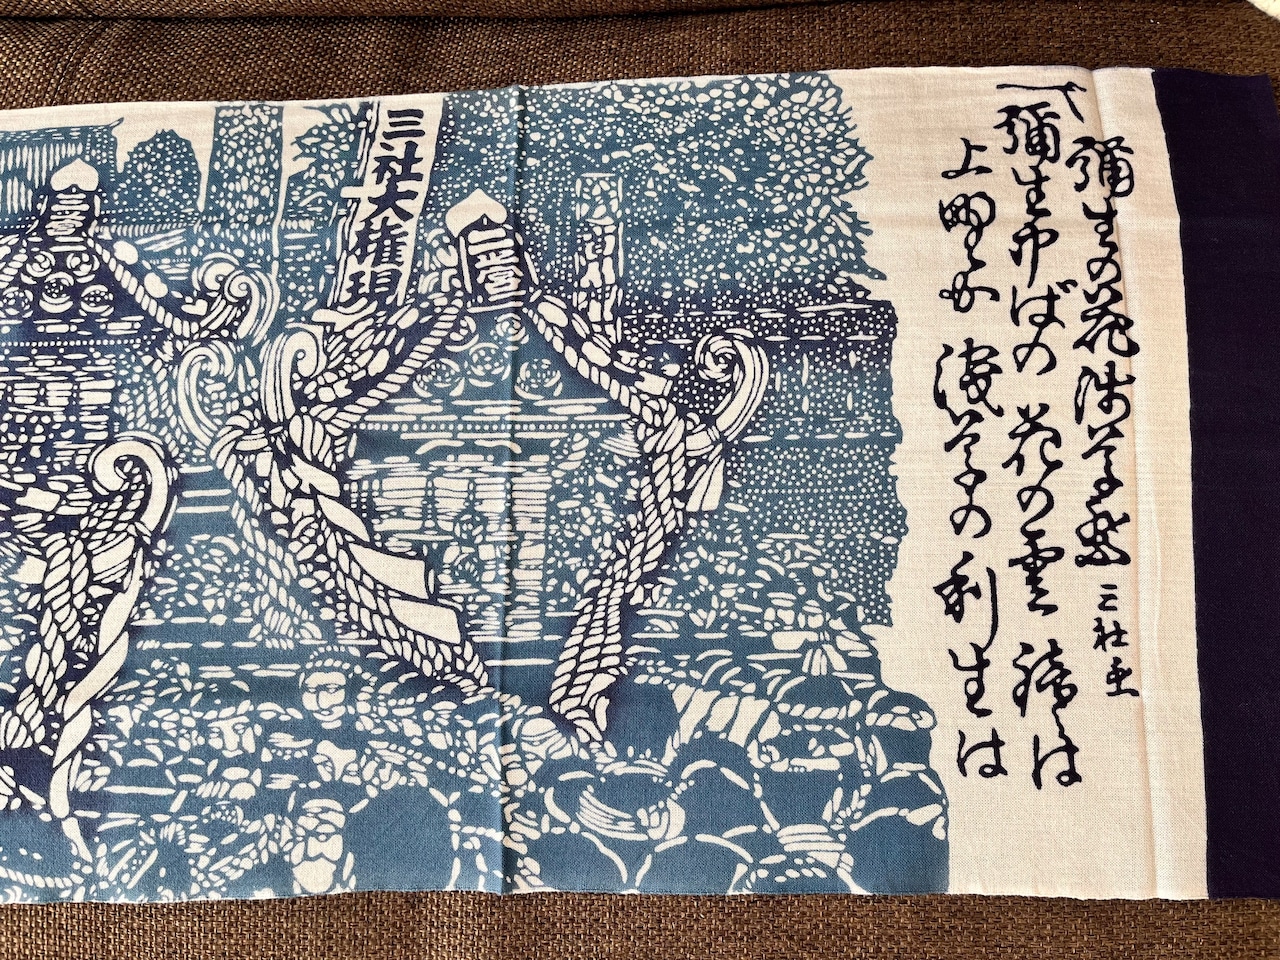 彌生の花浅草祭 三社祭
〽彌生半ばの花の雲 鐘は
上野か 浅草の利生は
三社大権現